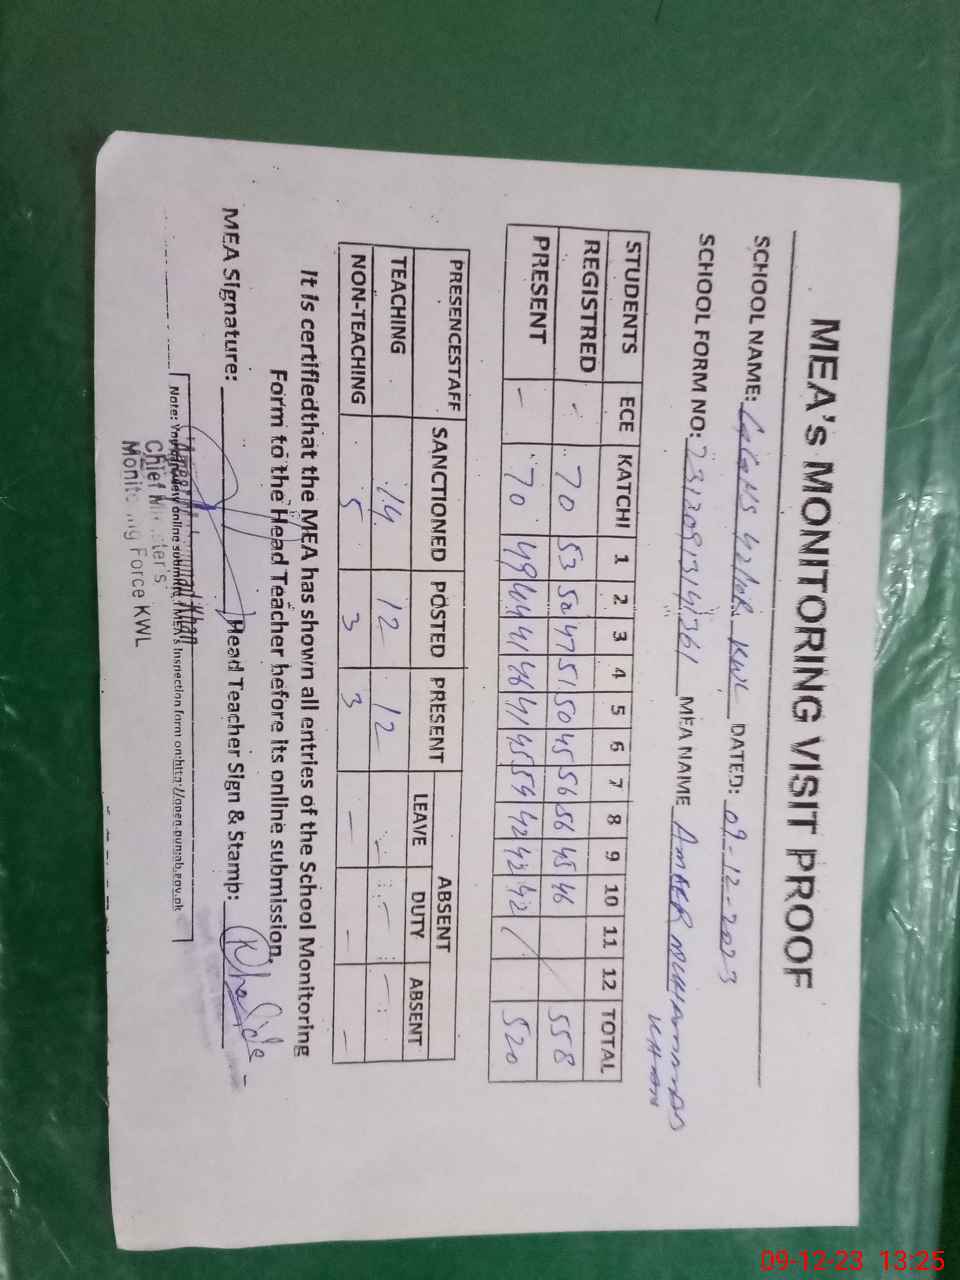 MEA's MONITORING VISIT PROOF
SCHOOL NAME: 42/10R KWL DATED: 09-12-2023
SCHOOL FORM NO: MEA NAME AMEER MUHAMMAD KHAN
STUDENTS ECE KATCHI 1 2 3 4 5 6 7 8 9 10 11 12 TOTAL
REGISTRED - 70 53 50 47 51 50 45 56 56 45 46 558
PRESENT - 70 49 44 41 46 41 45 42 42 42 520
PRESENCESTAFF SANCTIONED POSTED PRESENT ABSENT
LEAVE DUTY ABSENT
TEACHING 14 12 12 - - -
NON-TEACHING 5 3 3 - - -
It is certifiedthat the MEA has shown all entries of the School Monitoring
Form to the Head Teacher before its online submission.
MEA Signature: Head Teacher Sign & Stamp: Khalida
Note: You can view online submitted MEA's Inspection form on:http://open.punjab.gov.pk
Ameer Muhammad Khan
Chief Minister's
Monitoring Force KWL
09-12-23 13:25